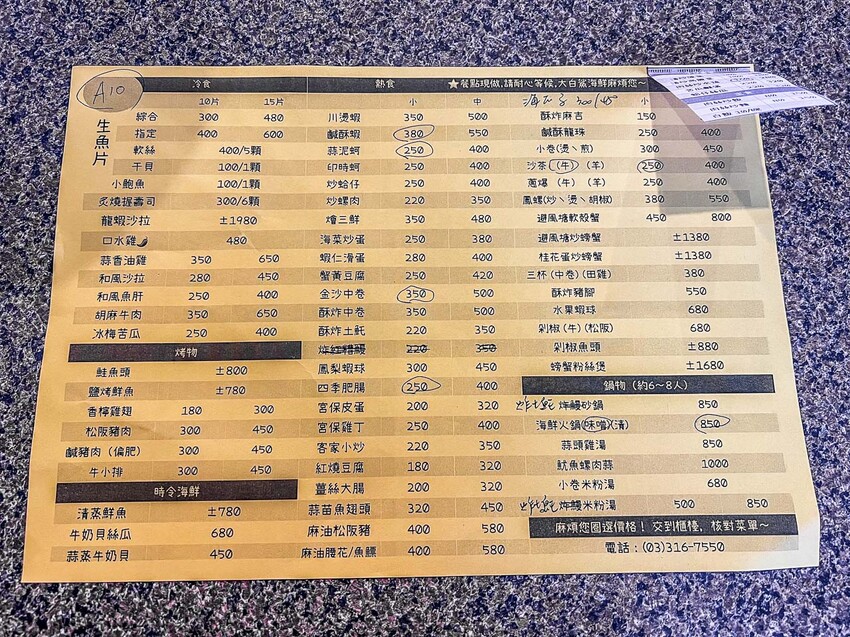 A10
冷食
10片 15片
生魚片
綜合 300 480
指定 400 600
軟絲 400/5顆
干貝 100/1顆
小鮑魚 100/1顆
炙燒握壽司 300/6顆
龍蝦沙拉 ±1980
口水雞 480
蒜香油雞 350 650
和風沙拉 280 450
和風魚肝 250 400
胡麻牛肉 350 650
冰梅苦瓜 250 400
烤物
鮭魚頭 ±800
鹽烤鮮魚 ±780
香檸雞翅 180 300
松阪豬肉 300 450
鹹豬肉(偏肥) 300 450
牛小排 300 450
時令海鮮
清蒸鮮魚 ±780
牛奶貝絲瓜 680
蒜蒸牛奶貝 450
熱食
小 中
川燙蝦 350 500
鹹酥蝦 380 550
蒜泥蚵 250 400
印時蚵 250 400
炒蛤仔 250 400
炒螺肉 220 350
燴三鮮 350 480
海菜炒蛋 250 380
蝦仁滑蛋 280 400
蟹黃豆腐 250 420
金沙中卷 350 500
酥炸中卷 350 500
酥炸土魠 220 350
炸紅糟鰻 220 350
鳳梨蝦球 300 450
四季肥腸 250 400
宮保皮蛋 200 320
宮保雞丁 250 400
客家小炒 220 350
紅燒豆腐 180 320
薑絲大腸 200 320
蒜苗魚翅頭 320 450
麻油松阪豬 400 580
麻油腰花/魚鰾 400 580
★餐點現做,請耐心等候,大白鯊海鮮麻煩您~
300/45 小
酥炸麻吉 150
鹹酥龍珠 250 400
小卷(燙、煎) 300 450
沙茶(牛)(羊) 250 400
蔥爆(牛)(羊) 250 400
鳳螺(炒、燙、胡椒) 380 550
避風塘軟殼蟹 450 800
避風塘炒螃蟹 ±1380
桂花蛋炒螃蟹 ±1380
三杯(中卷)(田雞) 380
酥炸豬腳 550
水果蝦球 680
剁椒(牛)(松阪) 680
剁椒魚頭 ±880
螃蟹粉絲煲 ±1680
鍋物(約6~8人)
炸土魠 炸鰻砂鍋 850
海鮮火鍋(味噌)(清) 850
蒜頭雞湯 850
魷魚螺肉蒜 1000
小卷米粉湯 680
炸土魠 炸鰻米粉湯 500 850
麻煩您圈選價格！交到櫃檯，核對菜單~
電話:(03)316-7550